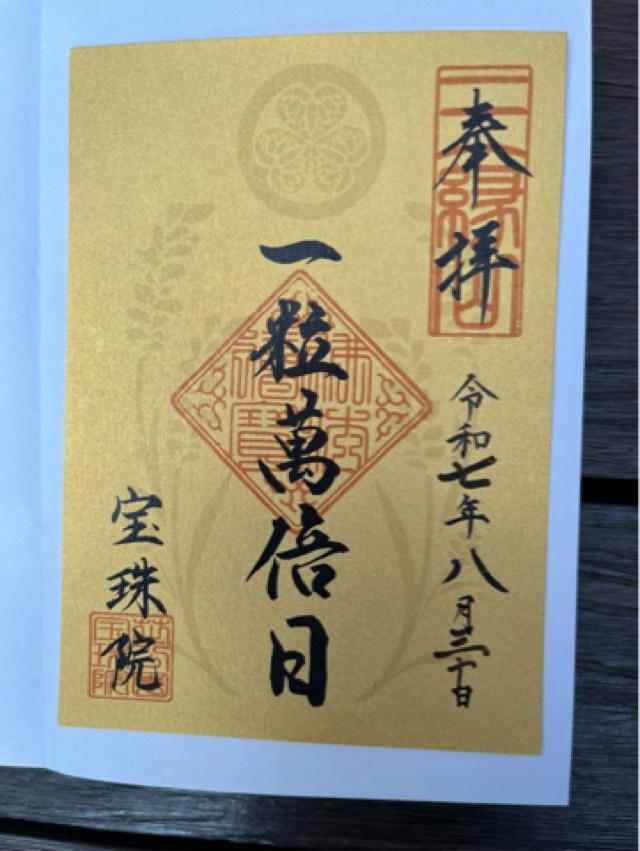 奉拝
令和七年八月三十日
一粒萬倍日
宝珠院